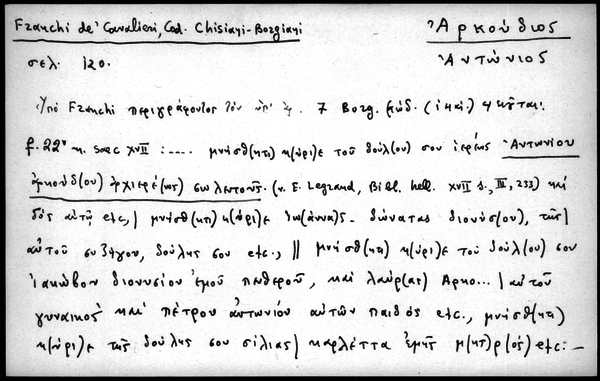 Franchi de' Cavalieri, Cod. Chisiani-Borgiani
Ἀρκούδιος
σελ. 120.
Ἀντώνιος
Ὑπὸ Franchi περιγράφοντος τὸν ὑπ' ἀ. 7 Borg. κώδ. ( ) κεῖται:
f. 22ᵛ m. saec XVII :.... μνήσθ(ητι) κ(ύρι)ε τοῦ δούλ(ου) σου ἱερέως Ἀντωνίου
ἀρκούδ(ου) ἀρχιερέ(ως) σωλεντοῦς. (v. E. Legrand, Bibl. hell. XVII s., III, 233) καὶ
δὸς αὐτῷ etc, | μνήσθ(ητι) κ(ύρι)ε Ἰω(άννα)ς. δώνατας διονύσ(ου), τῆς |
αὐτοῦ συζύγου, δούλης σου etc., || μνήσθ(ητι) κ(ύρι)ε τοῦ δούλ(ου) σου
ἰακώβου διονυσίου ἐμοῦ πενθεροῦ, καὶ λαύρ(ας) Αρκο... | αὐτοῦ
γυναικὸς καὶ πέτρου ἀντωνίου αὐτῶν παιδὸς etc., μνήσθ(ητι)
κ(ύρι)ε τῆς δούλης σου σίλιας | καρλέττα ἐμῆς μ(ητ)ρ(ὸς) etc: –